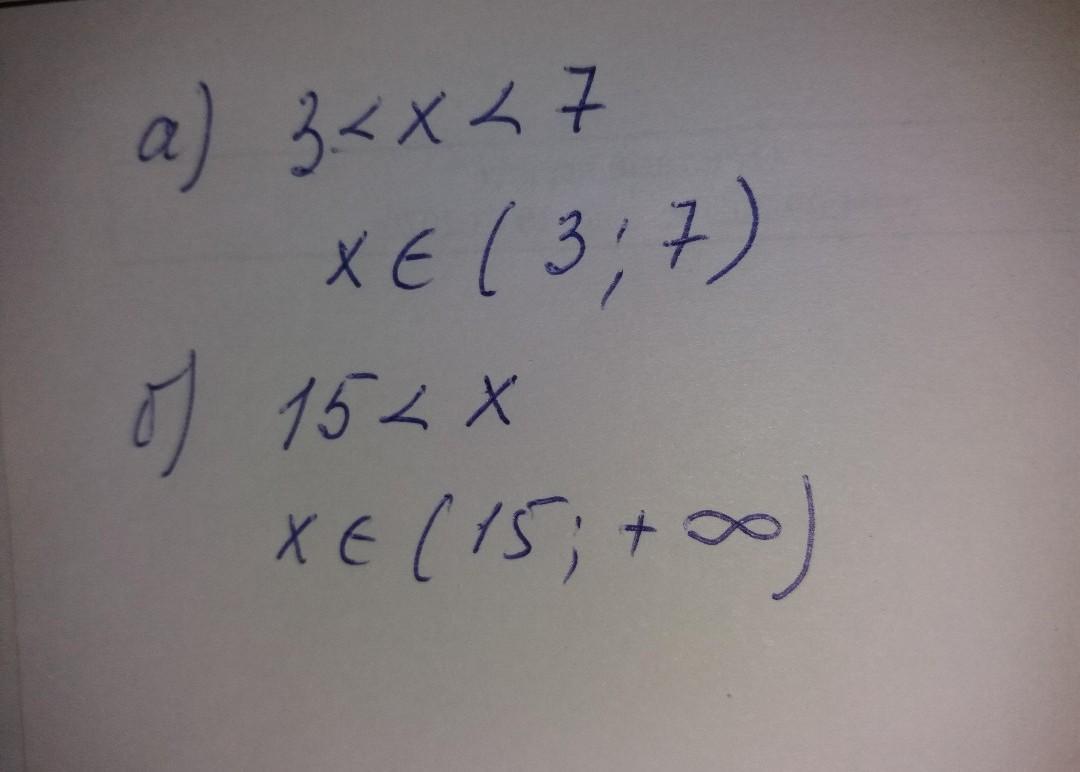 а) 3 < x < 7
x ∈ ( 3 ; 7 )
б) 15 < x
x ∈ ( 15 ; + ∞ )